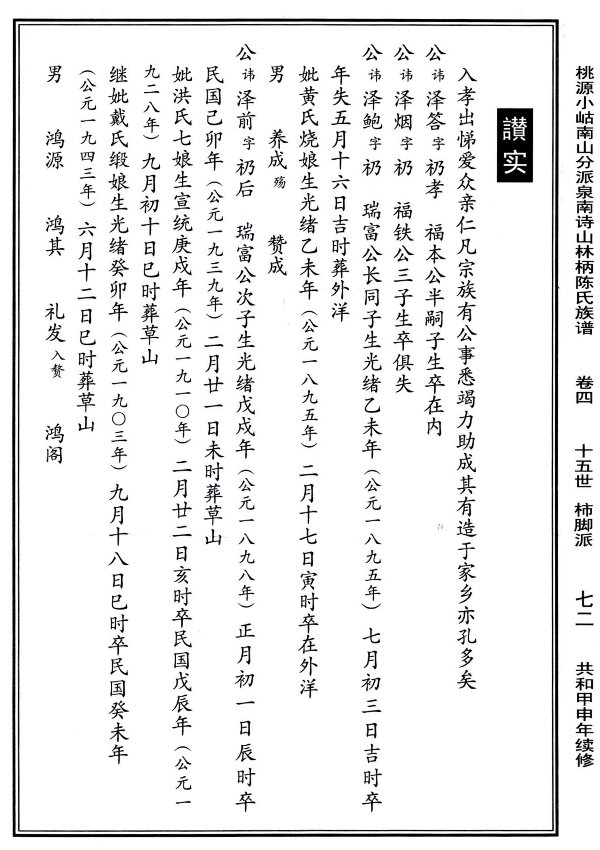 桃源小岵南山分派泉南诗山林柄陈氏族谱 卷四 十五世 柿脚派 七二 共和甲申年续修
讃实
入孝出悌爱众亲仁凡宗族有公事悉竭力助成其有造于家乡亦孔多矣
公讳泽答字礽孝 福本公半嗣子生卒在内
公讳泽烟字礽 福铁公三子生卒俱失
公讳泽鲍字礽 瑞富公长同子生光绪乙未年（公元一八九五年）七月初三日吉时卒
年失五月十六日吉时葬外洋
妣黄氏烧娘生光绪乙未年（公元一八九五年）二月十七日寅时卒在外洋
男 养成殇 赞成
公讳泽前字礽后 瑞富公次子生光绪戊戌年（公元一八九八年）正月初一日辰时卒
民国己卯年（公元一九三九年）二月廿一日未时葬草山
妣洪氏七娘生宣统庚戌年（公元一九一〇年）二月廿二日亥时卒民国戊辰年（公元一
九二八年）九月初十日巳时葬草山
继妣戴氏缎娘生光绪癸卯年（公元一九〇三年）九月十八日巳时卒民国癸未年
（公元一九四三年）六月十二日巳时葬草山
男 鸿源 鸿其 礼发入赘 鸿阁